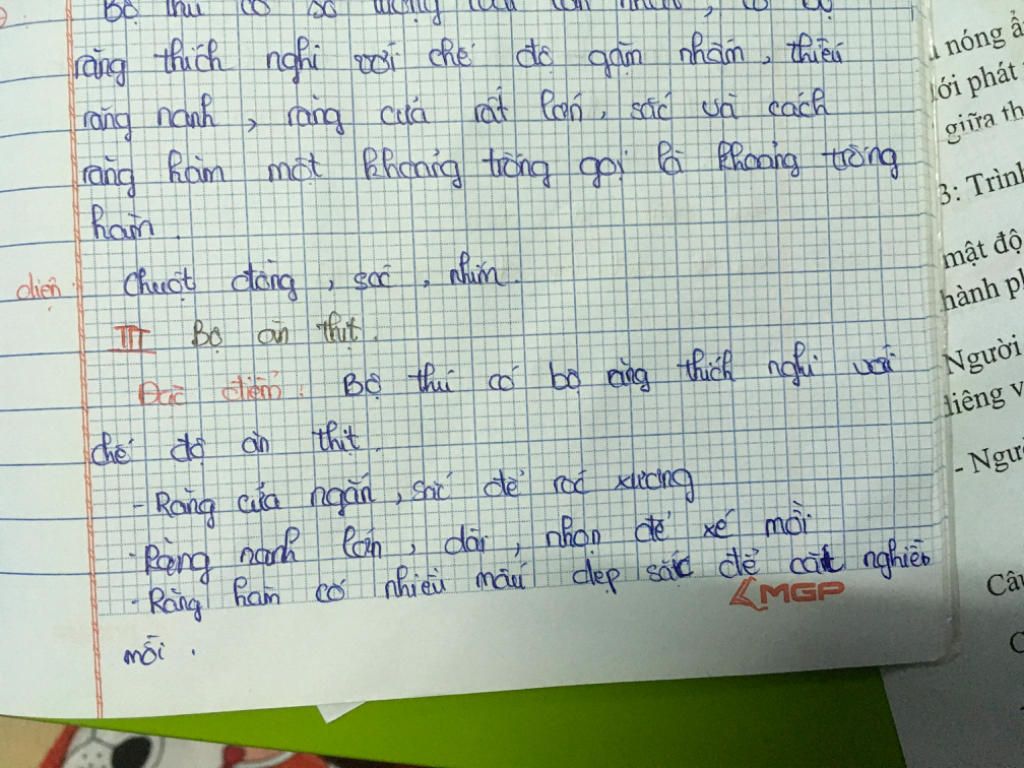 Bộ thú có số lượng loài lớn nhất, có bộ
răng thích nghi với chế độ gặm nhấm, thiếu
răng nanh, răng cửa rất lớn, sắc và cách
răng hàm một khoảng trống gọi là khoảng trống
hàm.
diện. chuột đồng, sóc, nhím.
III Bộ ăn thịt.
Đặc điểm: Bộ thú có bộ răng thích nghi với
chế độ ăn thịt.
- Răng cửa ngắn, sắc để róc xương
- Răng nanh lớn, dài, nhọn để xé mồi
- Răng hàm có nhiều mấu dẹp sắc để cắt nghiền
mồi.
MGP
nóng ẩ
giữa th
3: Trình
mật độ
hành ph
Người
liêng v
- Ngư
Câu